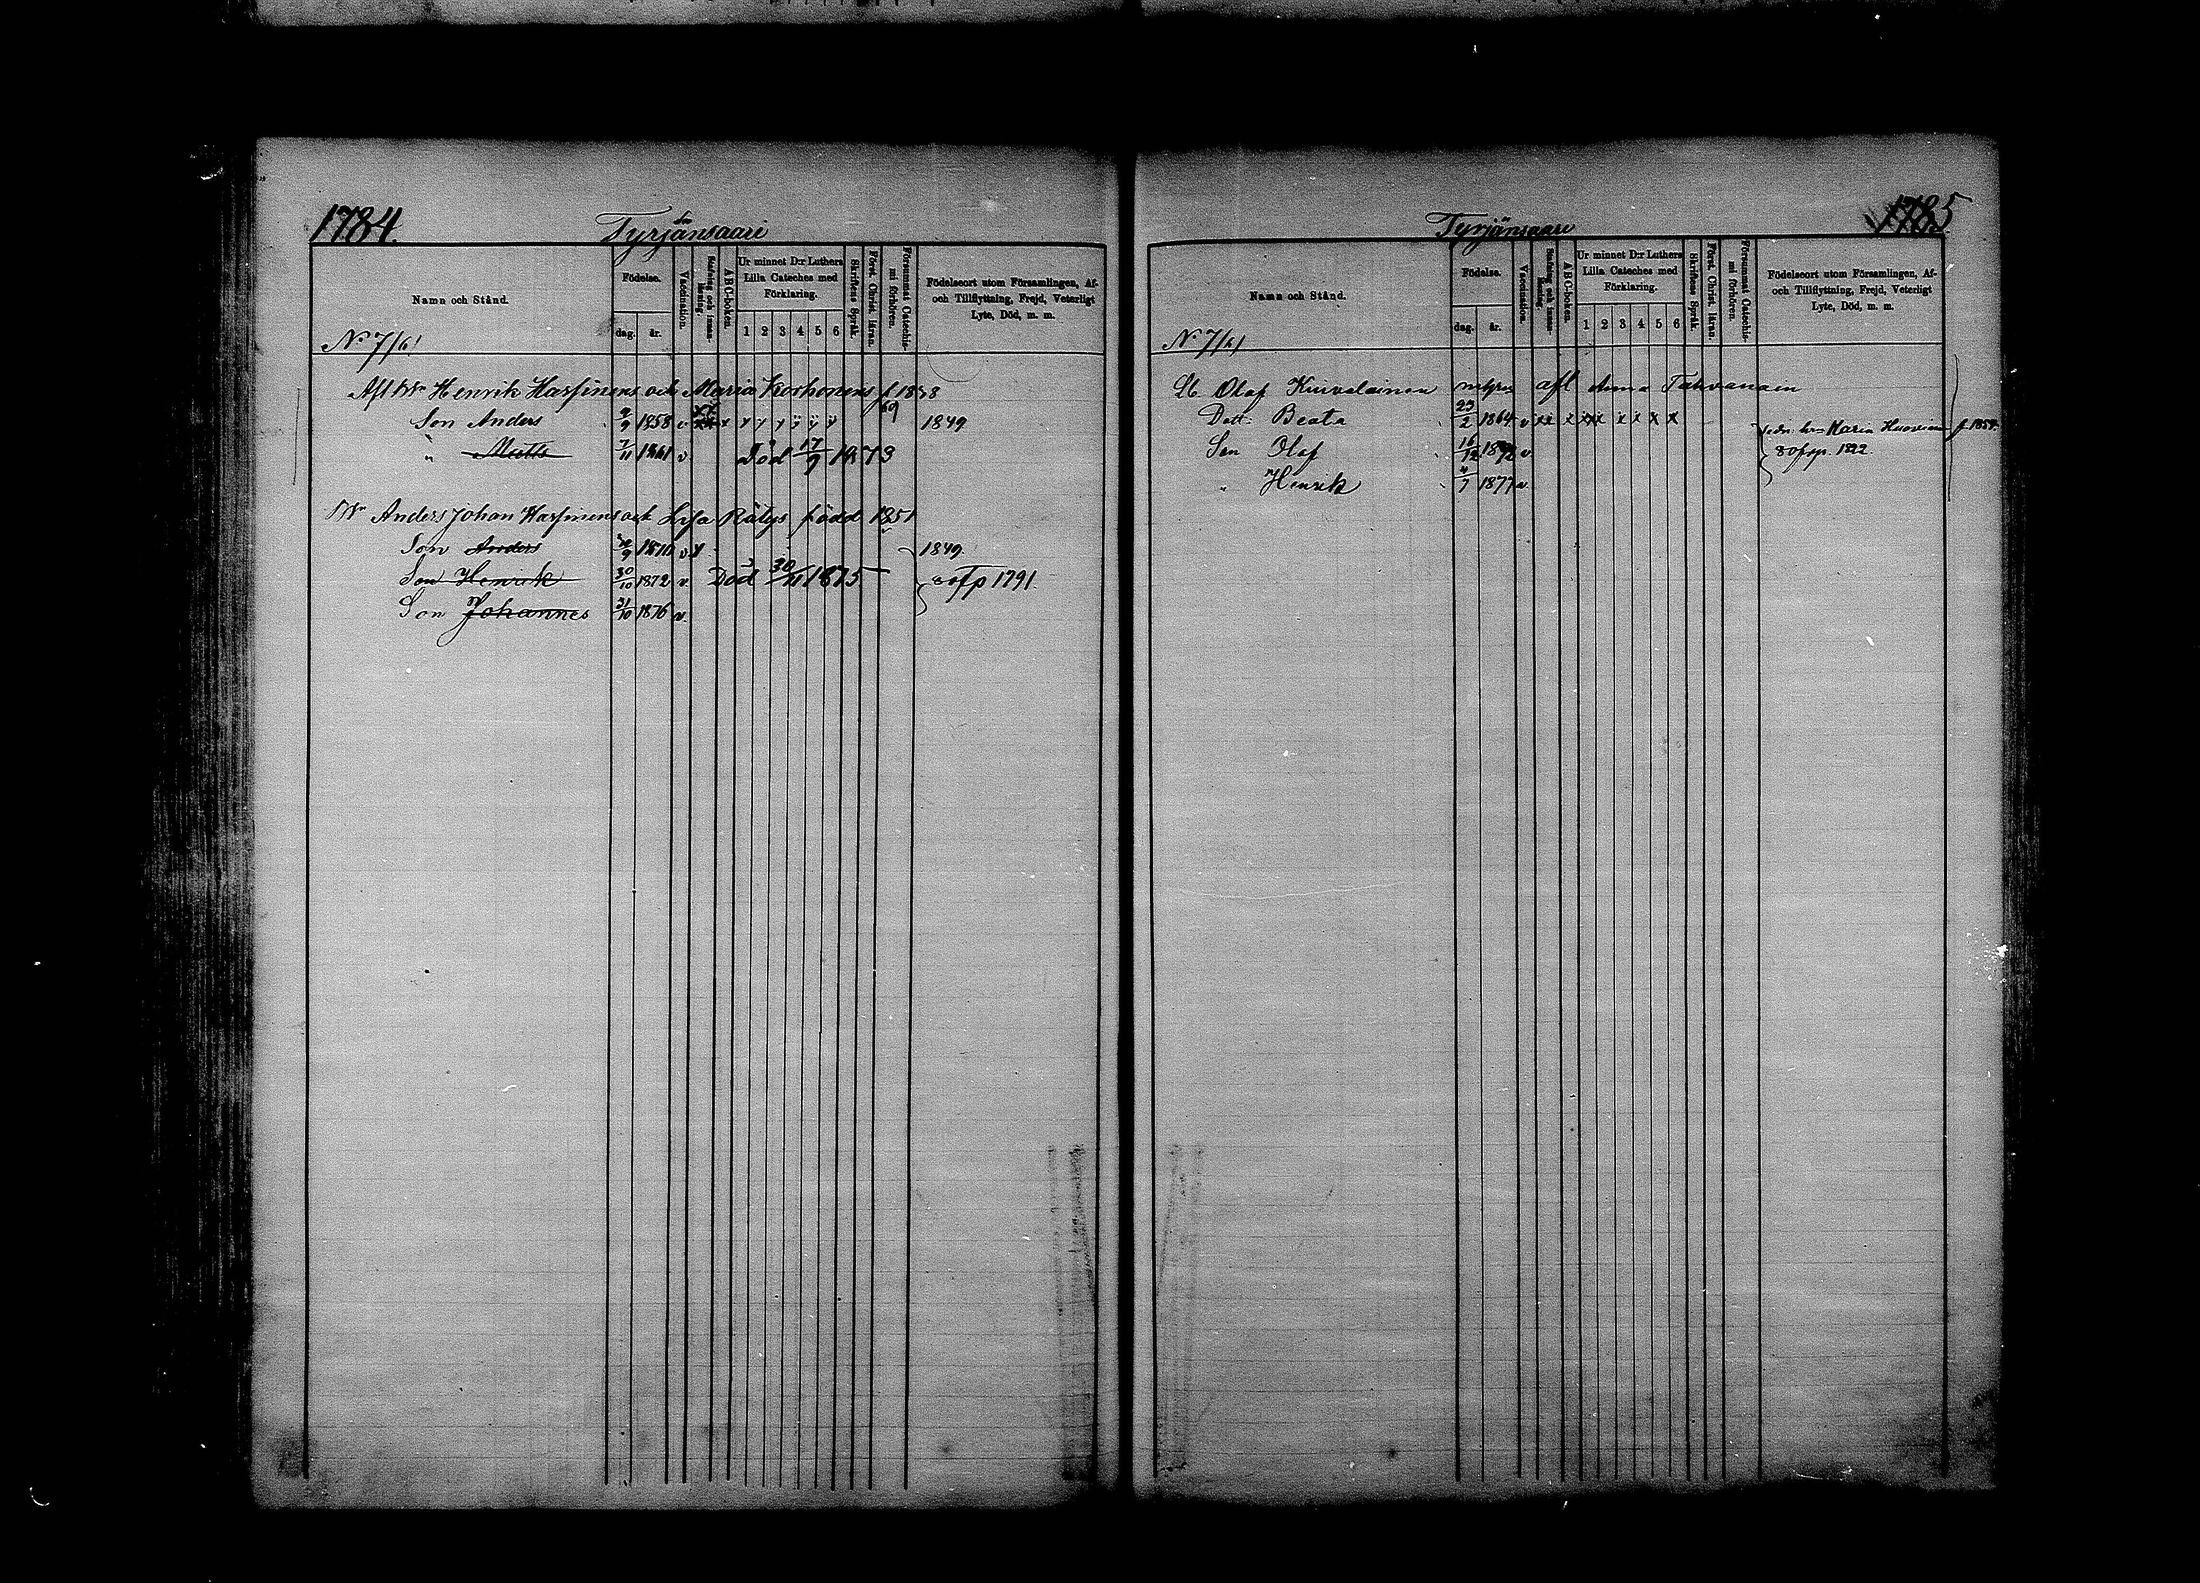 1784.
Tyrjänsaari
Namn och Stånd.
Födelse.
dag.
år.
Vaccination.
Stafning och innanläsning.
ABC-boken.
Ur minnet D:r Luthers Lilla Cateches med Förklaring.
1 2 3 4 5 6
Skriftens Språk.
Först. Christ. läran.
Försummat Catechismi förhören.
Födelseort utom Församlingen, Af- och Tillflyttning, Frejd, Veterligt Lyte, Död, m. m.
No 7/61
Afl. Henrik Harsinens och Maria Korhonens f. 1838
Son Anders 9/9 1858 v x y y y y y y 69 1849
" Matts 7/11 1861 v Död 17/9 1873
Anders Johan Harsinens och Lisa Rätys född 1851
Son Anders /9 1870 v y 1849
Son Henrik 30/10 1872 v Död 30/11 1875 Tp 1791
Son Johannes 21/10 1876 v.
1785
Tyrjänsaari
Namn och Stånd.
Födelse.
dag.
år.
Vaccination.
Stafning och innanläsning.
ABC-boken.
Ur minnet D:r Luthers Lilla Cateches med Förklaring.
1 2 3 4 5 6
Skriftens Språk.
Först. Christ. läran.
Försummat Catechismi förhören.
Födelseort utom Församlingen, Af- och Tillflyttning, Frejd, Veterligt Lyte, Död, m. m.
No 7/61
Olof Kuivalainen afl Anna Tahvanain
Dott. Beata 23/2 1864 v xx x xx x x x x x Maria Huovinen f. 1854
Son Olof 16/12 1872 v. 1822
" Henrik 4/7 1877 v.